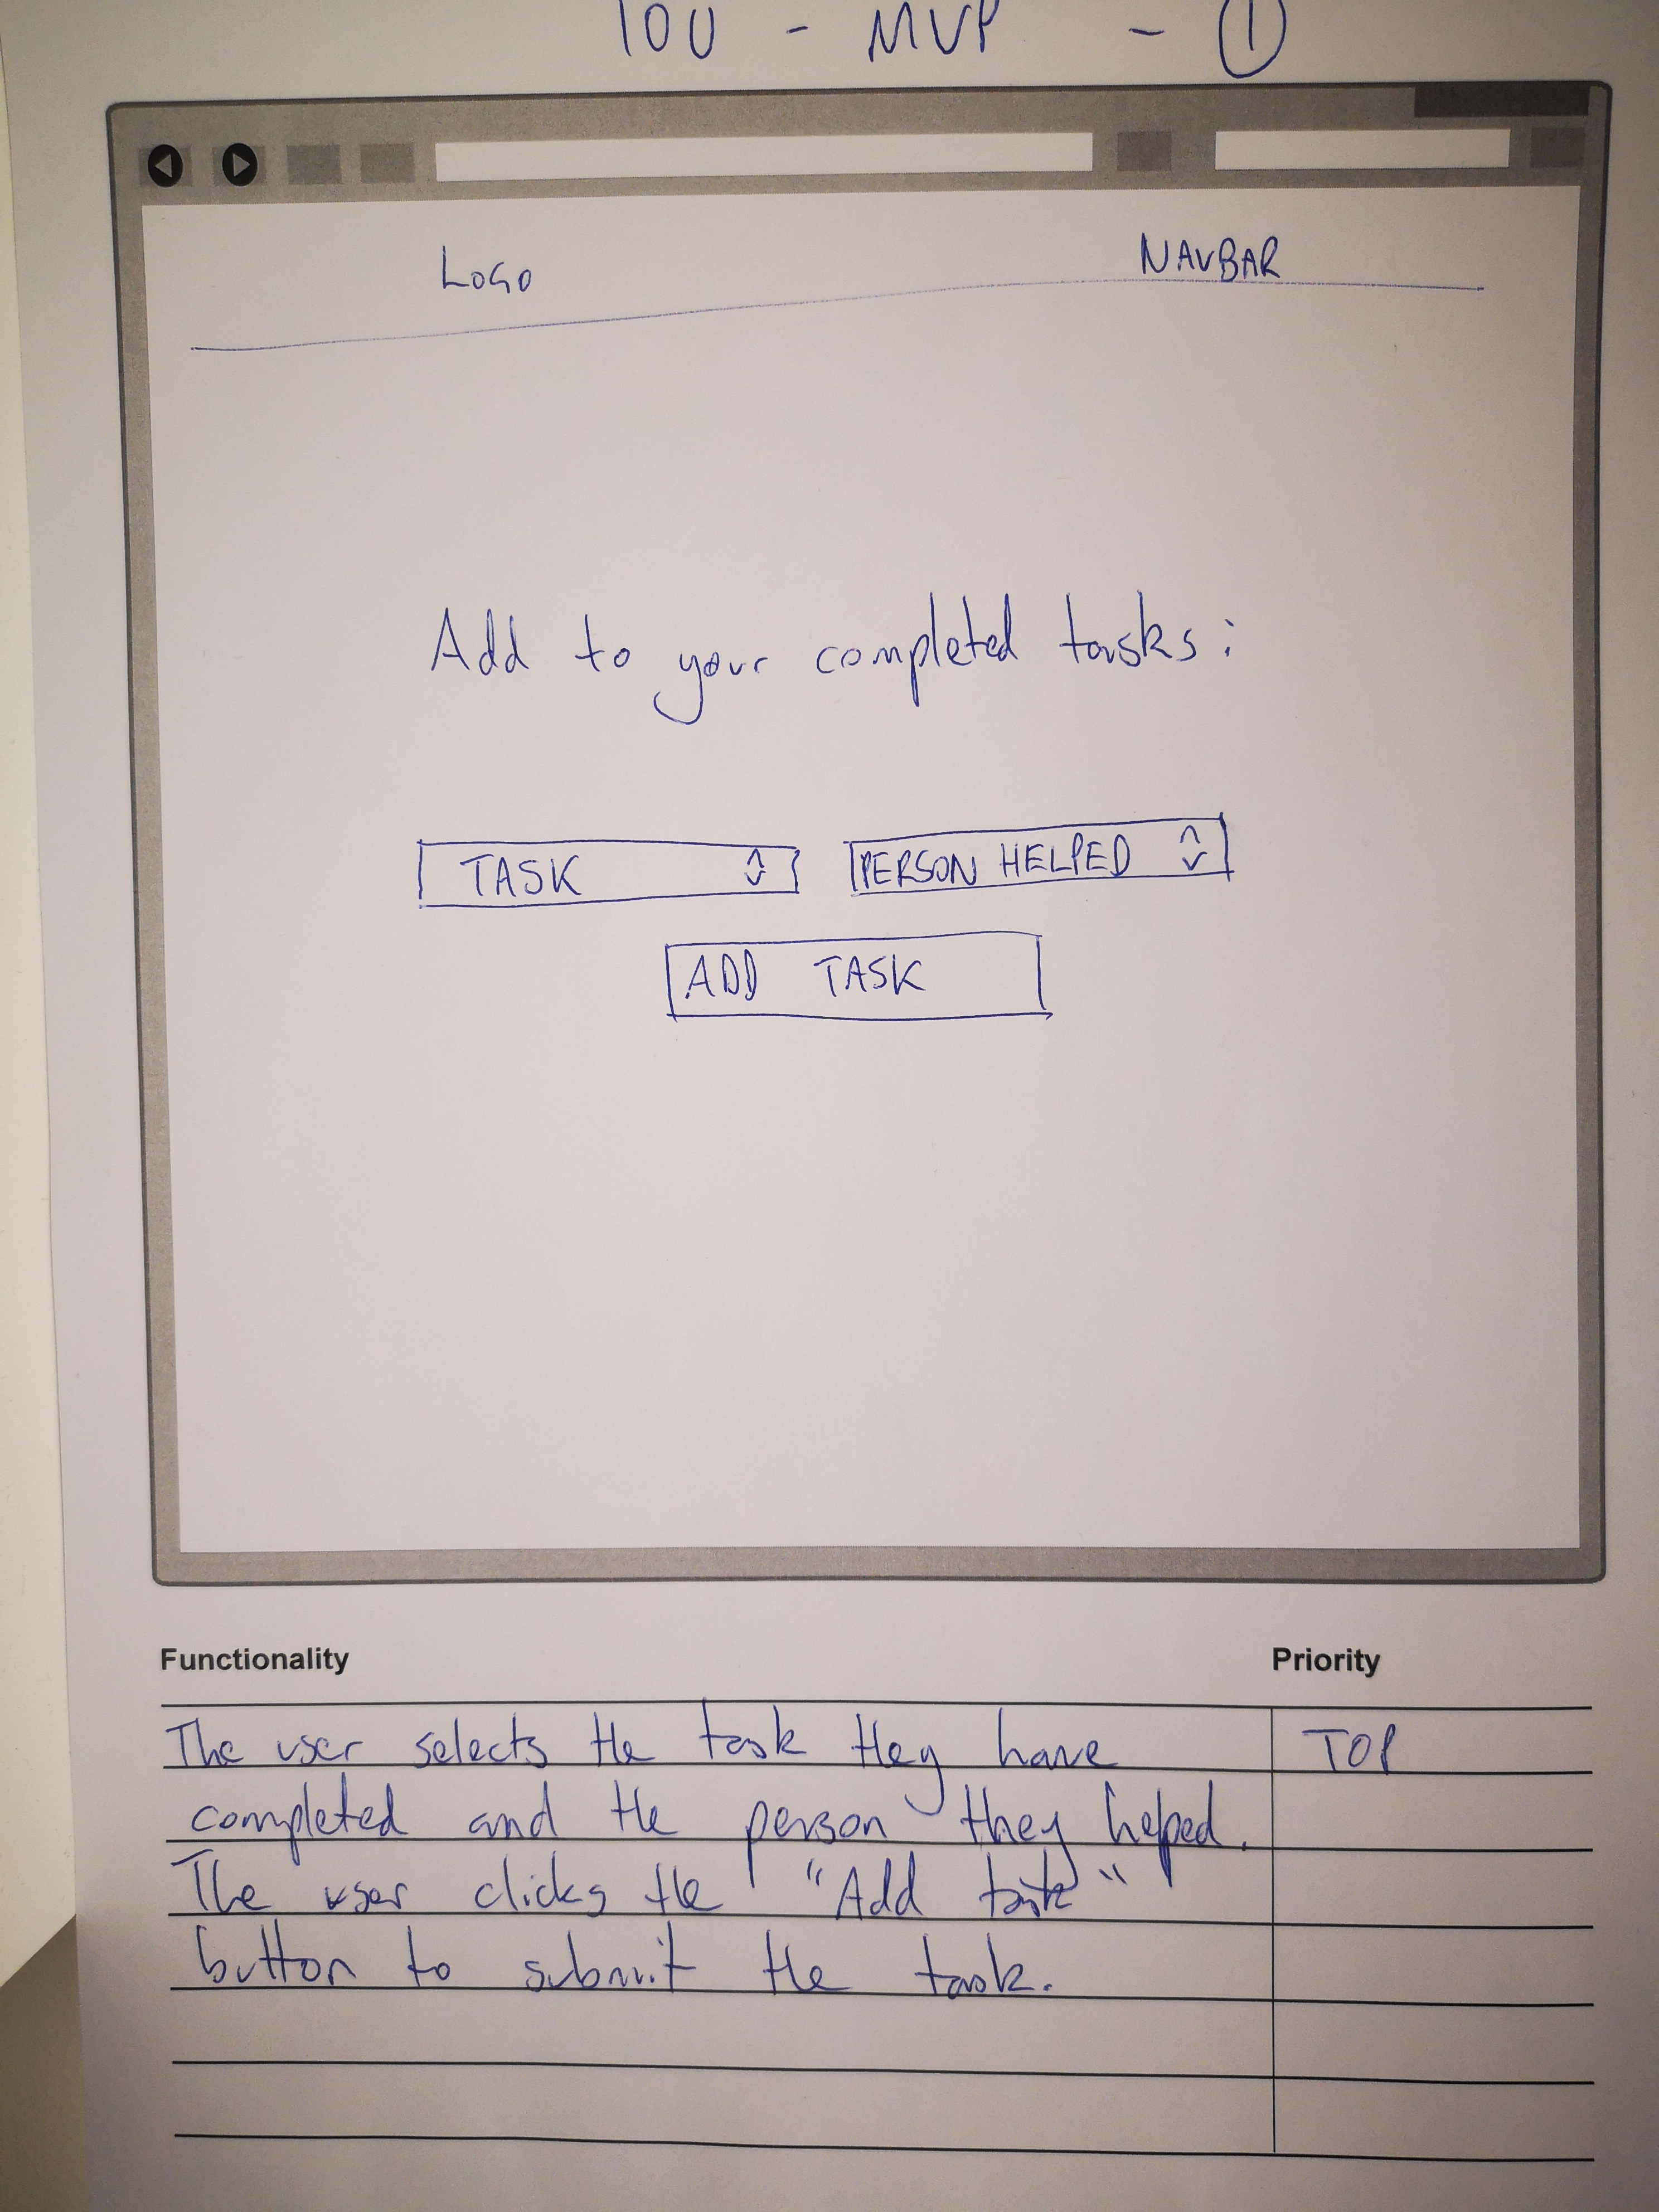 IOU - MVP - ①
LOGO NAVBAR
Add to your completed tasks:
TASK PERSON HELPED
ADD TASK
Functionality Priority
The user selects the task they have TOP
completed and the person they helped.
The user clicks the "Add task"
button to submit the task.